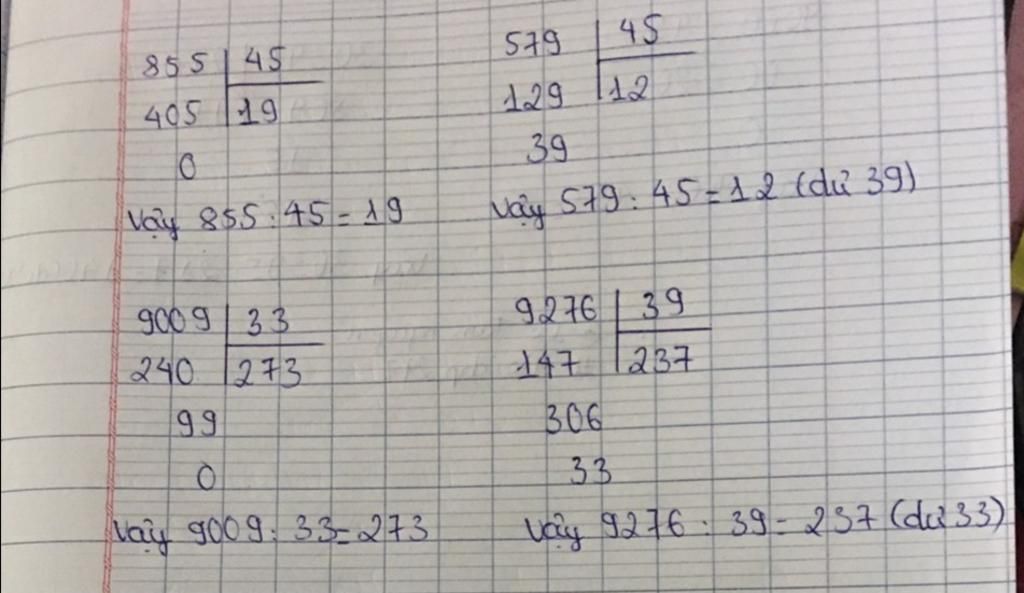 855 | 45
405 | 19
0
Vậy 855 : 45 = 19
579 | 45
129 | 12
39
Vậy 579 : 45 = 12 (dư 39)
9009 | 33
240 | 273
99
0
Vậy 9009 : 33 = 273
9276 | 39
147 | 237
306
33
Vậy 9276 : 39 = 237 (dư 33)